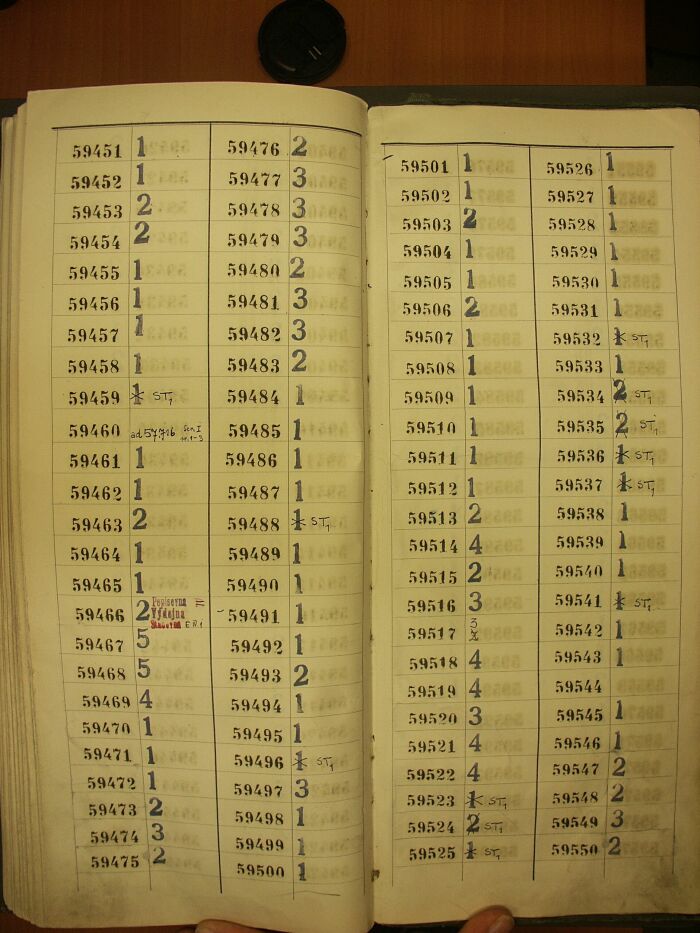 59451 1
59452 1
59453 2
59454 2
59455 1
59456 1
59457 1
59458 1
59459 1 ST1
59460 ad 57.706
59461 1
59462 1
59463 2
59464 1
59465 1
59466 2 Popisevna Výdejna E.R.1
59467 5
59468 5
59469 4
59470 1
59471 1
59472 1
59473 2
59474 3
59475 2
59476 2
59477 3
59478 3
59479 3
59480 2
59481 3
59482 3
59483 2
59484 1
59485 1
59486 1
59487 1
59488 1 ST1
59489 1
59490 1
59491 1
59492 1
59493 2
59494 1
59495 1
59496 1 ST1
59497 3
59498 1
59499 1
59500 1
59501 1
59502 1
59503 2
59504 1
59505 1
59506 2
59507 1
59508 1
59509 1
59510 1
59511 1
59512 1
59513 2
59514 4
59515 2
59516 3
59517 3
59518 4
59519 4
59520 3
59521 4
59522 4
59523 1 ST1
59524 2 ST1
59525 1 ST1
59526 1
59527 1
59528 1
59529 1
59530 1
59531 1
59532 1 ST1
59533 1
59534 2 ST1
59535 2 ST1
59536 1 ST1
59537 1 ST1
59538 1
59539 1
59540 1
59541 1 ST1
59542 1
59543 1
59544
59545 1
59546 1
59547 2
59548 2
59549 3
59550 2